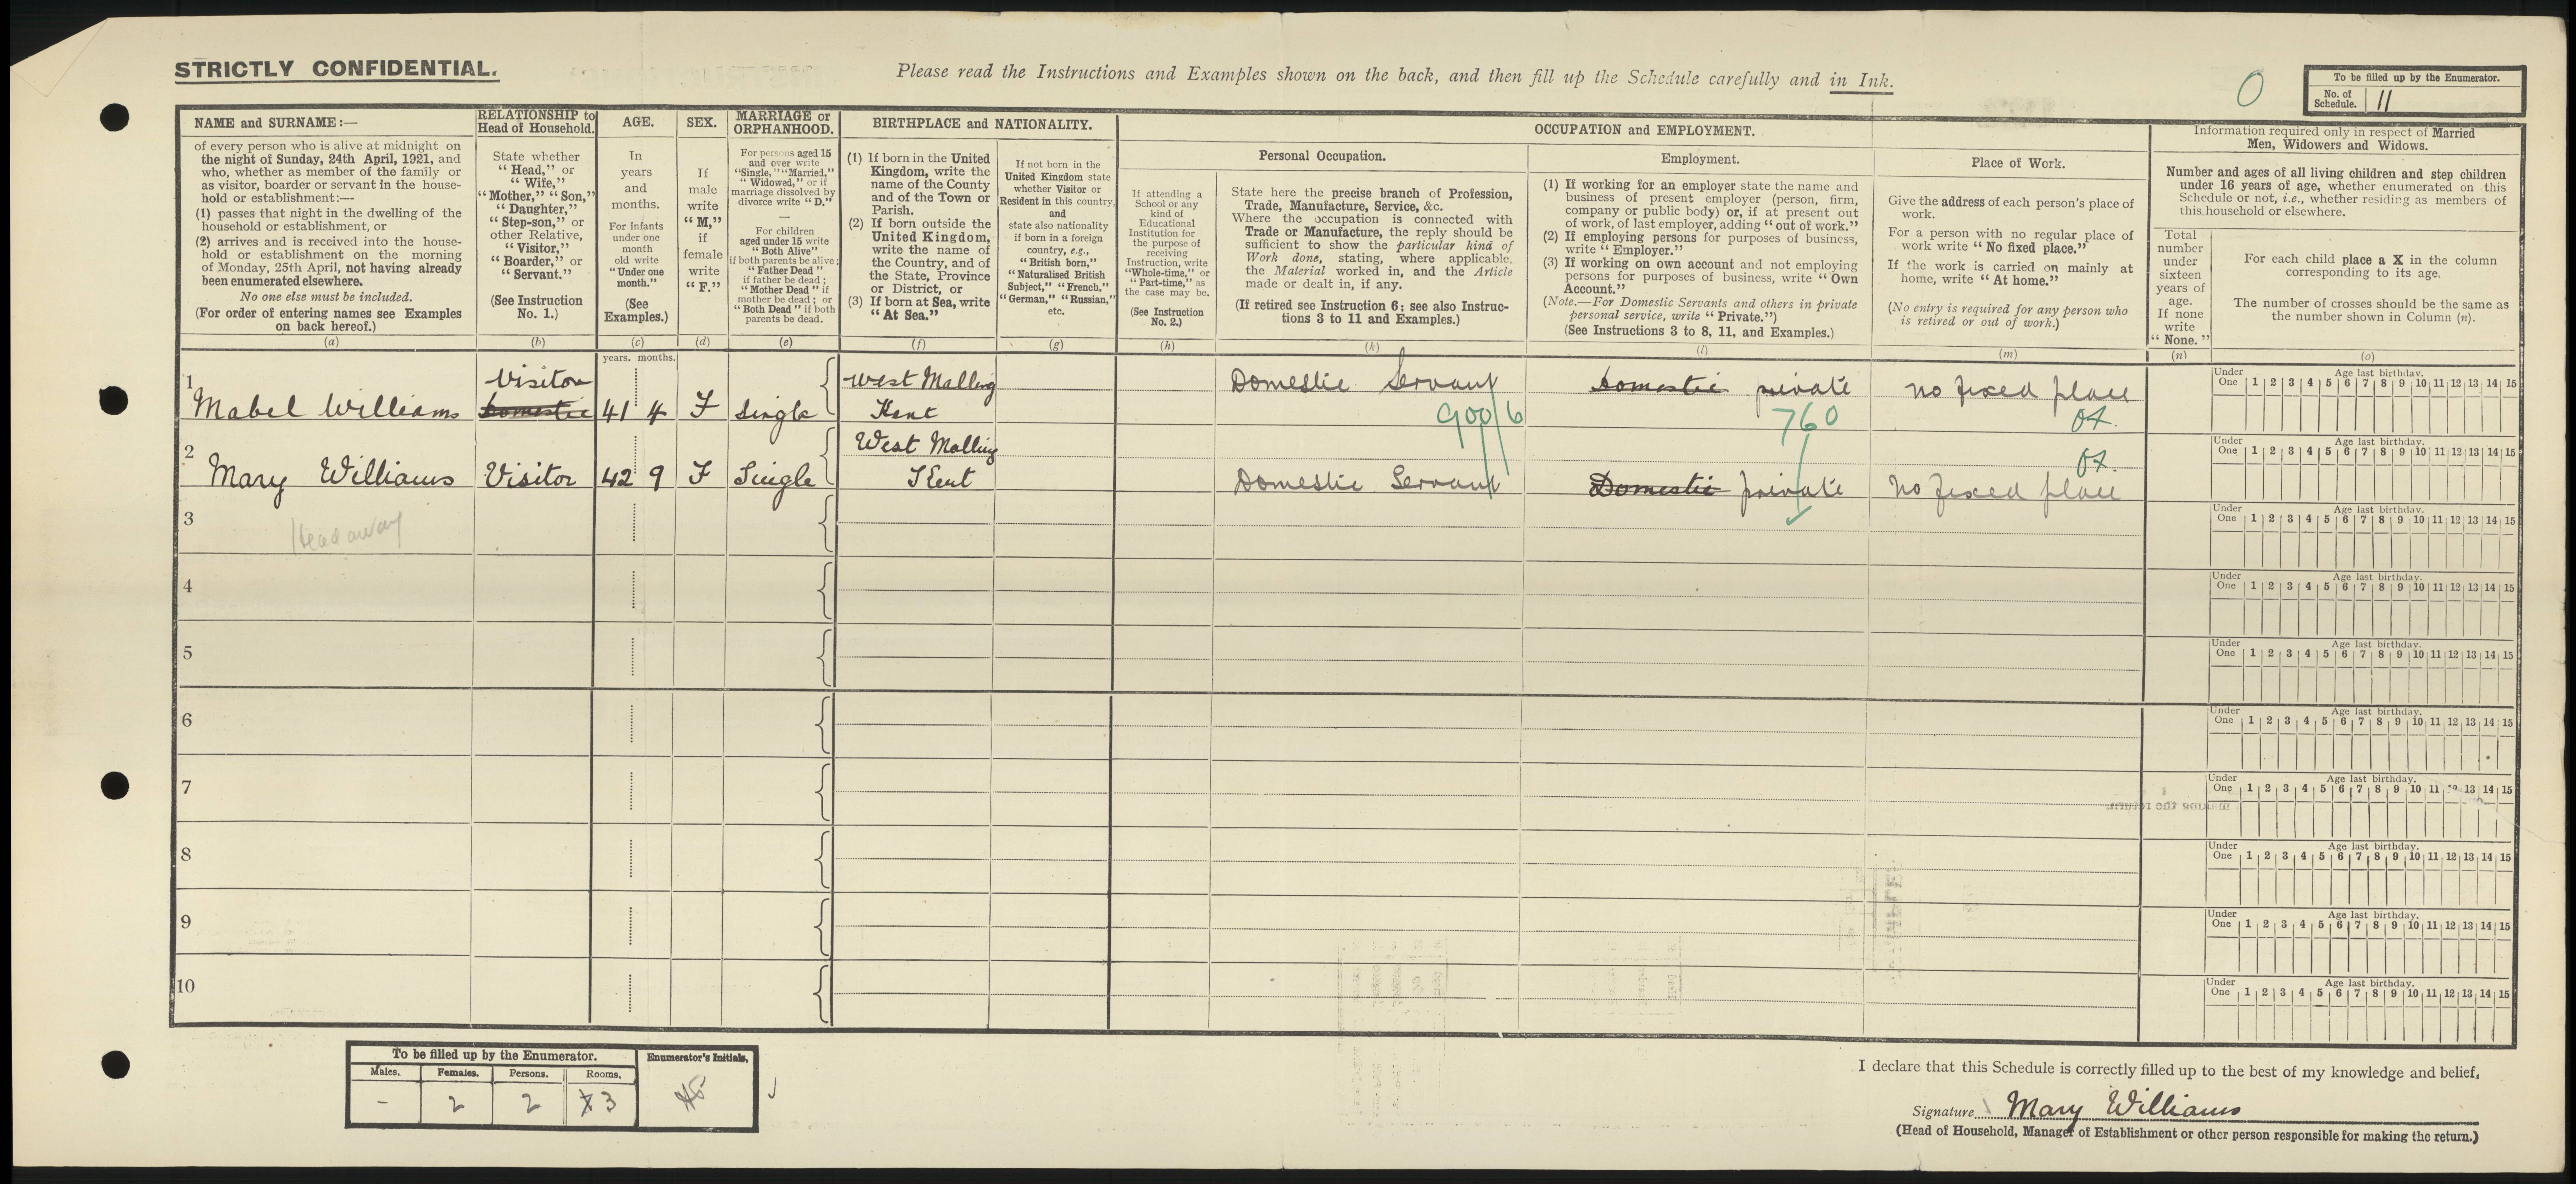 STRICTLY CONFIDENTIAL.
Please read the Instructions and Examples shown on the back, and then fill up the Schedule carefully and in Ink.
0
To be filled up by the Enumerator.
No. of Schedule. 11
NAME and SURNAME:—
of every person who is alive at midnight on
the night of Sunday, 24th April, 1921, and
who, whether as member of the family or
as visitor, boarder or servant in the house-
hold or establishment:—
(1) passes that night in the dwelling of the
household or establishment, or
(2) arrives and is received into the house-
hold or establishment on the morning
of Monday, 25th April, not having already
been enumerated elsewhere.
No one else must be included.
(For order of entering names see Examples
on back hereof.)
(a)
RELATIONSHIP to
Head of Household.
State whether
"Head," or
"Wife,"
"Mother," "Son,"
"Daughter,"
"Step-son," or
other Relative,
"Visitor,"
"Boarder," or
"Servant."
(See Instruction
No. 1.)
(b)
AGE.
In
years
and
months.
For infants
under one
month
old write
"Under one
month."
(See
Examples.)
(c)
SEX.
If
male
write
"M,"
if
female
write
"F."
(d)
MARRIAGE or
ORPHANHOOD.
For persons aged 15
and over write
"Single," "Married,"
"Widowed," or if
marriage dissolved by
divorce write "D."
—
For children
aged under 15 write
"Both Alive"
if both parents be alive;
"Father Dead"
if father be dead;
"Mother Dead" if
mother be dead; or
"Both Dead" if both
parents be dead.
(e)
BIRTHPLACE and NATIONALITY.
(1) If born in the United
Kingdom, write the
name of the County
and of the Town or
Parish.
(2) If born outside the
United Kingdom,
write the name of
the Country, and of
the State, Province
or District, or
(3) If born at Sea, write
"At Sea."
(f)
If not born in the
United Kingdom state
whether Visitor or
Resident in this country,
and
state also nationality
if born in a foreign
country, e.g.,
"British born,"
"Naturalised British
Subject," "French,"
"German," "Russian,"
etc.
(g)
OCCUPATION and EMPLOYMENT.
Personal Occupation.
If attending a
School or any
kind of
Educational
Institution for
the purpose of
receiving
Instruction, write
"Whole-time," or
"Part-time," as
the case may be.
(See Instruction
No. 2.)
(h)
State here the precise branch of Profession,
Trade, Manufacture, Service, &c.
Where the occupation is connected with
Trade or Manufacture, the reply should be
sufficient to show the particular kind of
Work done, stating, where applicable,
the Material worked in, and the Article
made or dealt in, if any.
(If retired see Instruction 6; see also Instruc-
tions 3 to 11 and Examples.)
(k)
Employment.
(1) If working for an employer state the name and
business of present employer (person, firm,
company or public body) or, if at present out
of work, of last employer, adding "out of work."
(2) If employing persons for purposes of business,
write "Employer."
(3) If working on own account and not employing
persons for purposes of business, write "Own
Account."
(Note.—For Domestic Servants and others in private
personal service, write "Private.")
(See Instructions 3 to 8, 11, and Examples.)
(l)
Place of Work.
Give the address of each person's place of
work.
For a person with no regular place of
work write "No fixed place."
If the work is carried on mainly at
home, write "At home."
(No entry is required for any person who
is retired or out of work.)
(m)
Information required only in respect of Married
Men, Widowers and Widows.
Number and ages of all living children and step children
under 16 years of age, whether enumerated on this
Schedule or not, i.e., whether residing as members of
this household or elsewhere.
Total
number
under
sixteen
years of
age.
If none
write
"None."
(n)
For each child place a X in the column
corresponding to its age.
The number of crosses should be the same as
the number shown in Column (n).
(o)
years. months.
1 Mabel Williams Visitor Domestic 41 4 F Single West Malling Kent Domestic Servant Domestic private no fixed place
900/6 760
Under One Age last birthday. 1 2 3 4 5 6 7 8 9 10 11 12 13 14 15
2 Mary Williams Visitor 42 9 F Single West Malling Kent Domestic Servant Domestic private No fixed place
Under One Age last birthday. 1 2 3 4 5 6 7 8 9 10 11 12 13 14 15
3 Head away
Under One Age last birthday. 1 2 3 4 5 6 7 8 9 10 11 12 13 14 15
4
Under One Age last birthday. 1 2 3 4 5 6 7 8 9 10 11 12 13 14 15
5
Under One Age last birthday. 1 2 3 4 5 6 7 8 9 10 11 12 13 14 15
6
Under One Age last birthday. 1 2 3 4 5 6 7 8 9 10 11 12 13 14 15
7
Under One Age last birthday. 1 2 3 4 5 6 7 8 9 10 11 13 14 15
8
Under One Age last birthday. 1 2 3 4 5 6 7 8 9 10 11 12 13 14 15
9
Under One Age last birthday. 1 2 3 4 5 6 7 8 9 10 11 12 13 14 15
10
Under One Age last birthday. 1 2 3 4 5 6 7 8 9 10 11 12 13 14 15
To be filled up by the Enumerator.
Enumerator's Initials.
Males. Females. Persons. Rooms.
- 2 2 3
I declare that this Schedule is correctly filled up to the best of my knowledge and belief,
Signature Mary Williams
(Head of Household, Manager of Establishment or other person responsible for making the return.)